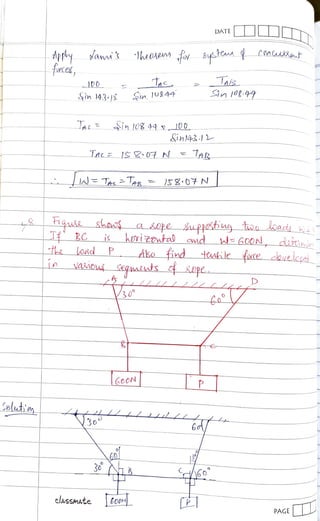 DATE
Apply Lami's Theorem for system of concurrent
forces,
100 = TAC = TAB
Sin 143.15 Sin 108.44 Sin 108.44
TAC = Sin 108.44 × 100
Sin 143.12
TAC = 158.07 N = TAB
∴ W = TAC = TAB = 158.07 N
Figure shows a rope supporting two loads
If BC is horizontal and W = 600N,
the load P. Also find tensile force
in various segments of rope.
A D
30° 60°
B C
600N P
Solution
30° 60
60°
30° B C 60°
600N P
classmate
PAGE